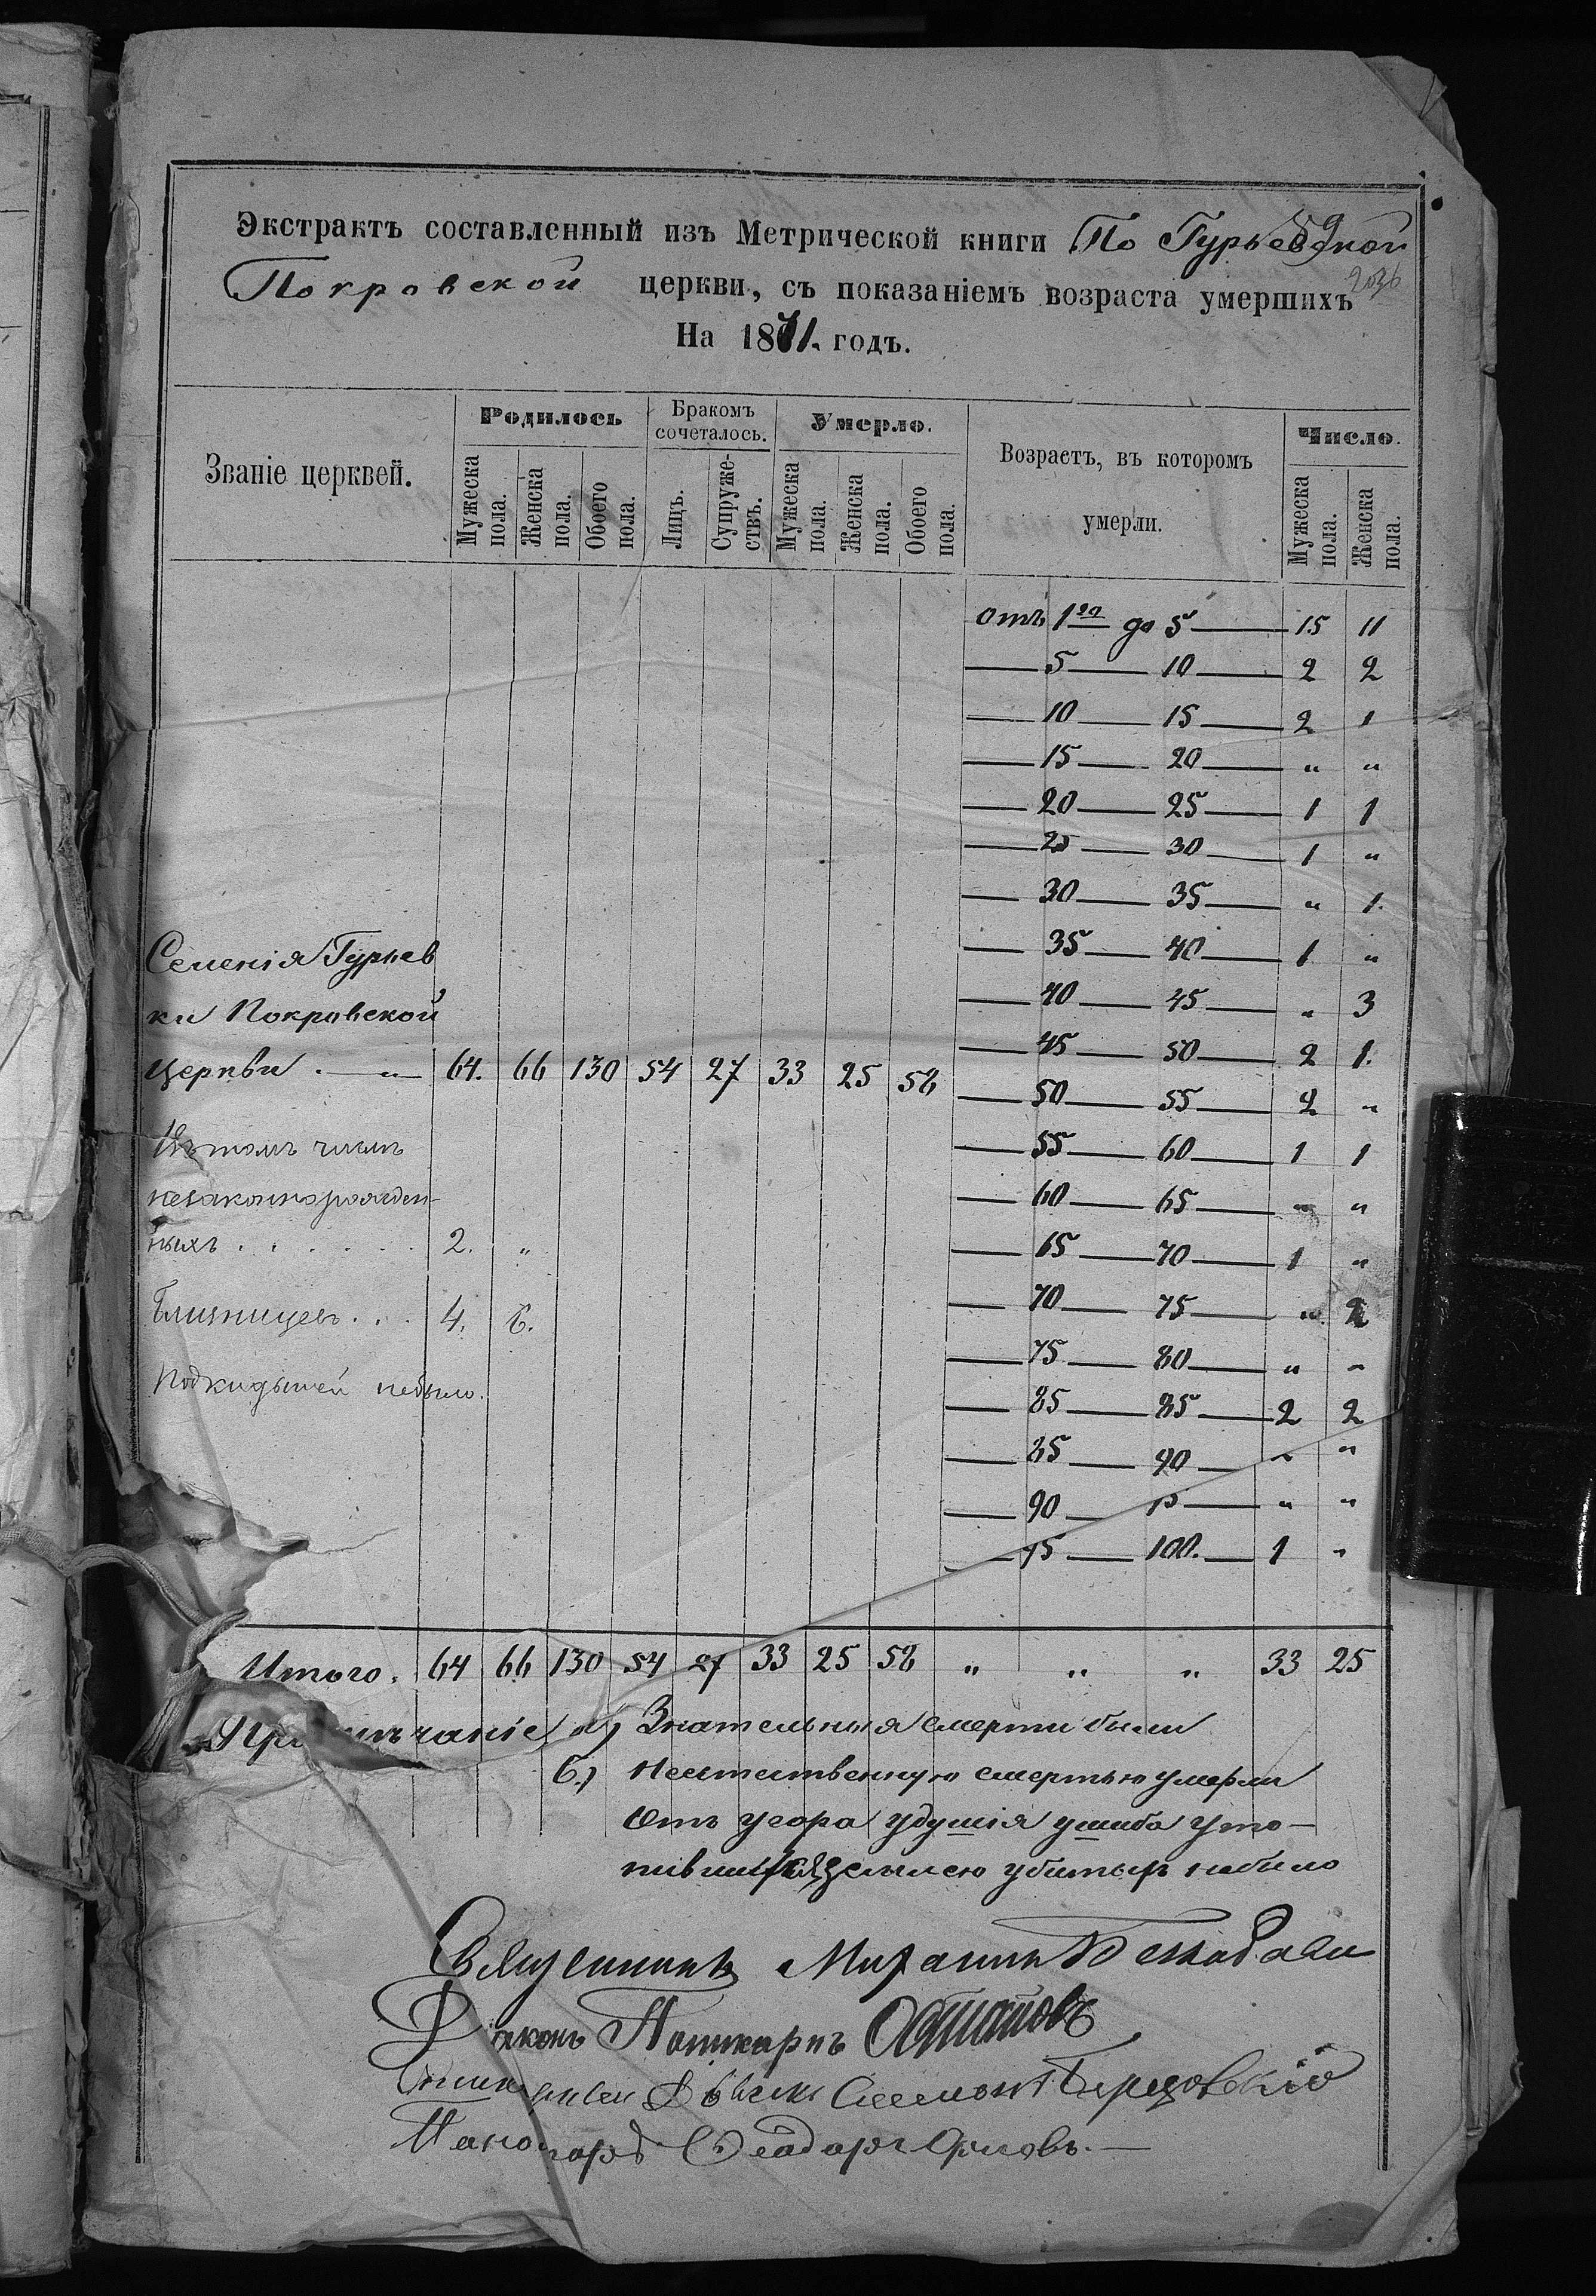 Экстрактъ составленный изъ Метрической книги По Гурьевской
59
Покровской церкви, съ показаніемъ возраста умершихъ
2036
На 1871. годъ.
Званіе церквей.
Родилось
Бракомъ сочеталось.
Умерло.
Возрастъ, въ которомъ умерли.
Число.
Мужеска пола.
Женска пола.
Обоего пола.
Лицъ.
Супружествъ.
Мужеска пола.
Женска пола.
Обоего пола.
Мужеска пола.
Женска пола.
отъ 1го до 5 15 11
5 10 2 2
10 15 2 1
15 20 „ „
20 25 1 1
25 30 1 „
30 35 „ 1.
35 40 1 „
40 45 „ 3
45 50 2 1.
50 55 2 „
55 60 1 1
60 65 „ „
65 70 1 „
70 75 „ 2
75 80 „ „
85 85 2 2
85 90 „ „
90 „ „
95 100. 1 „
Селенія Гурьев
ки Покровской
церкви . — „ — 64. 66 130 54 27 33 25 58
Въ томъ числѣ
незаконорожден-
ныхъ . . . . . . 2. „
Близнецовъ . . . 4. 6.
Подкидышей небыло.
Итого. 64 66 130 54 27 33 25 58 „ „ „ 33 25
Примѣчаніе а) Знательныя смерти были
б) Неестественную смертью умерли
Отъ угора удушія ушиба уто-
убитыхъ небыло
Священникъ Михаилъ
Діаконъ Поликарпъ
Березовскій
Пономарь Ѳеодоръ Орловъ. —